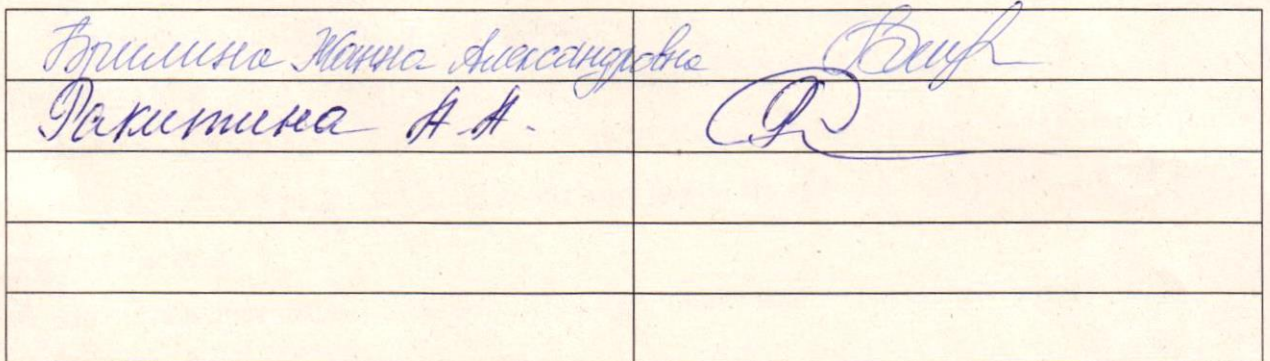 Брилина Жанна Александровна
Ракитина А.А.